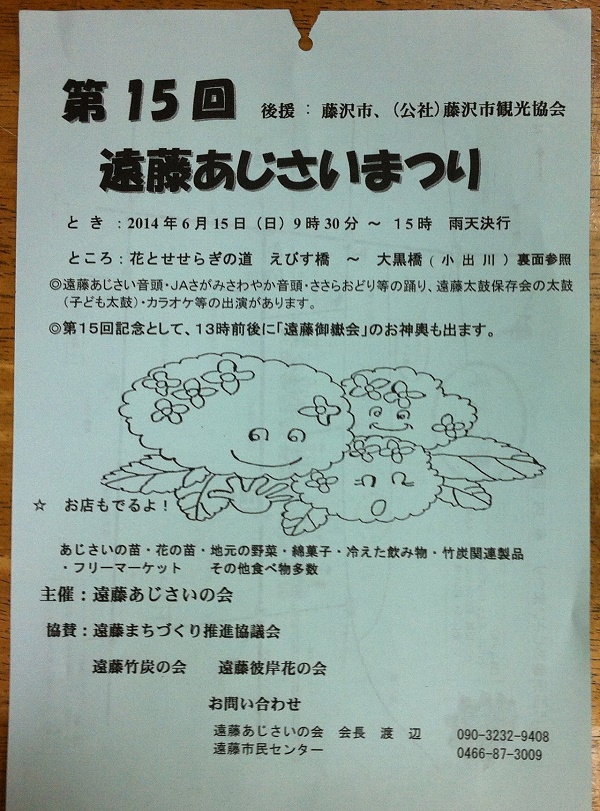 第15回 後援：藤沢市、(公社)藤沢市観光協会
遠藤あじさいまつり
とき：2014年6月15日（日）9時30分～15時 雨天決行
ところ：花とせせらぎの道 えびす橋 ～ 大黒橋(小出川) 裏面参照
◎遠藤あじさい音頭・JAさがみさわやか音頭・ささらおどり等の踊り、遠藤太鼓保存会の太鼓
（子ども太鼓）・カラオケ等の出演があります。
◎第15回記念として、13時前後に「遠藤御嶽会」のお神輿も出ます。
☆ お店もでるよ！
あじさいの苗・花の苗・地元の野菜・綿菓子・冷えた飲み物・竹炭関連製品
・フリーマーケット その他食べ物多数
主催：遠藤あじさいの会
協賛：遠藤まちづくり推進協議会
遠藤竹炭の会 遠藤彼岸花の会
お問い合わせ
遠藤あじさいの会 会長 渡 辺 090-3232-9408
遠藤市民センター 0466-87-3009